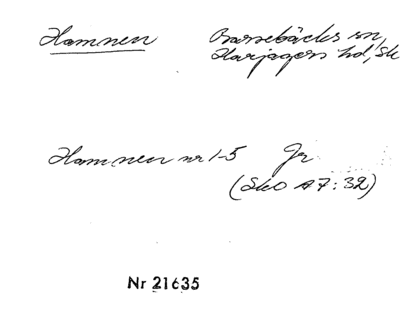 Hamnen Barsebäcks sn,
Harjagers hd, Sk
Hamnen nr 1-5 Gr
(SkO A7:32)
Nr 21635